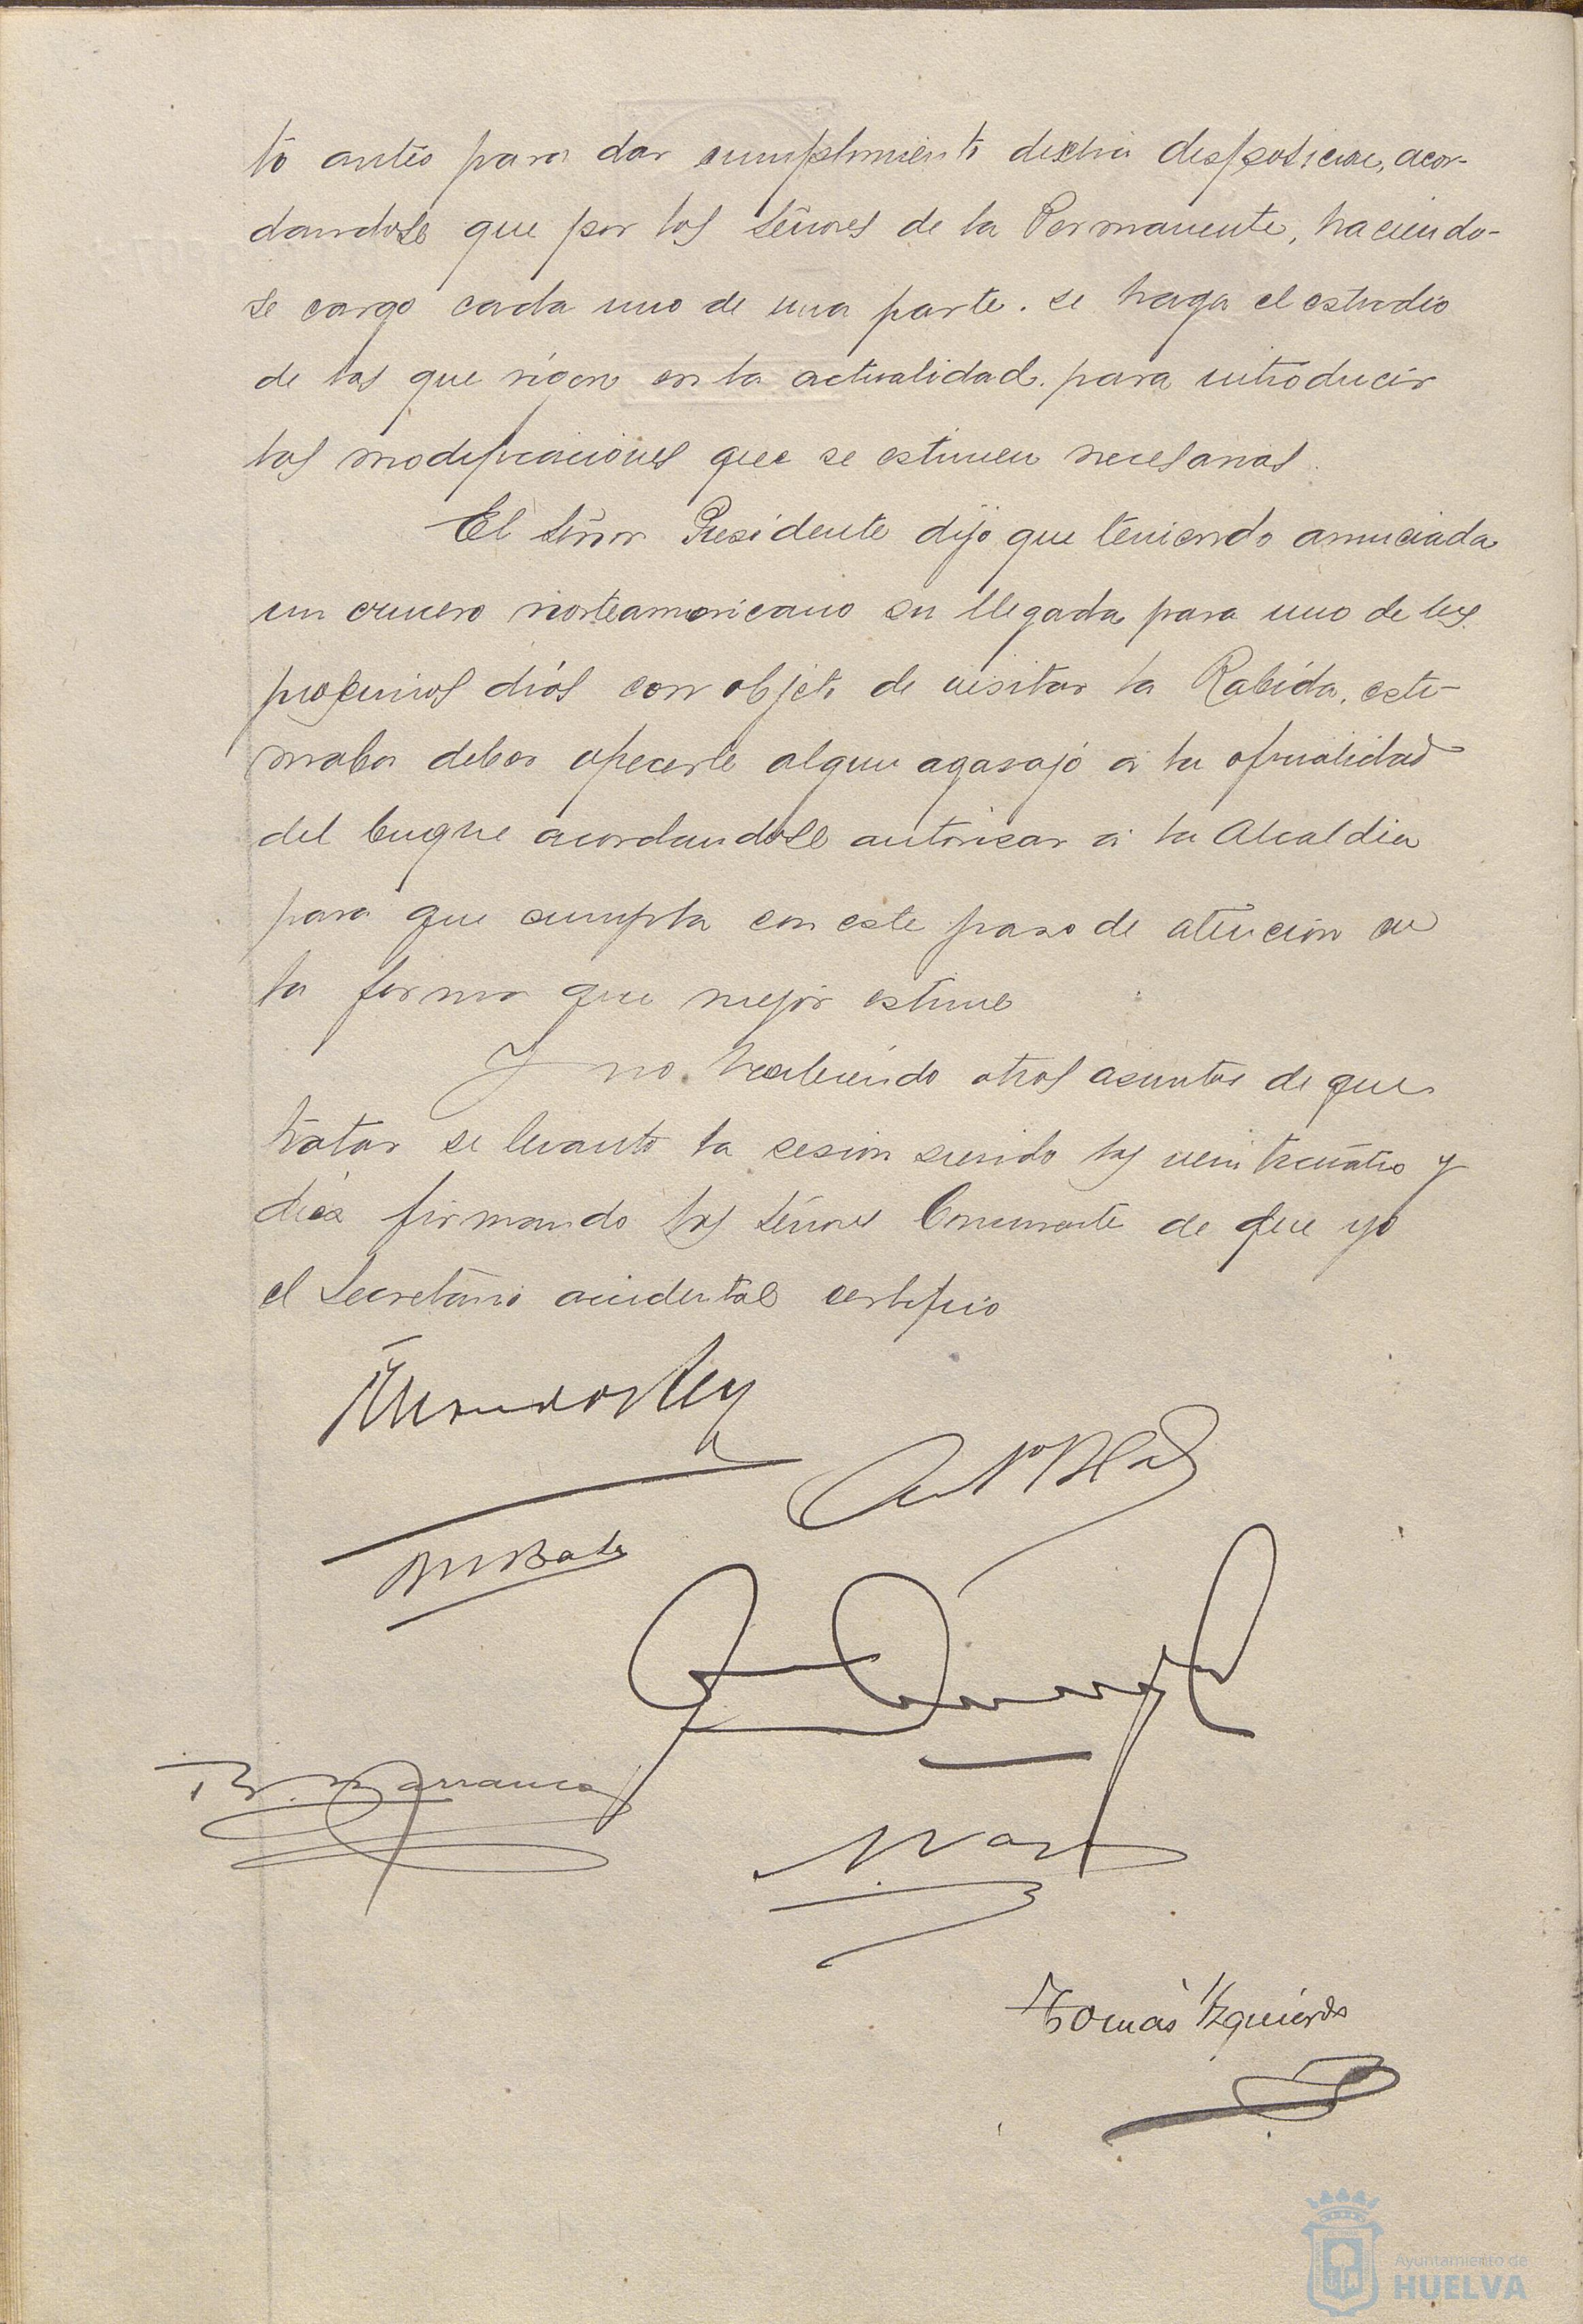 to antes para dar cumplimiento dicha disposicion, acor-
dandose que por los Señores de la Permanente, haciendo-
se cargo cada uno de una parte. se haga el estudio
de las que rigen en la actualidad. para introducir
las modificaciones que se estimen necesarias.
El Señor Presidente dijo que teniendo anunciada
un crucero norteamericano su llegada para uno de los
proximos dias con objeto de visitar la Rabida, esti-
maba deber ofrecerle algun agasajo a la oficialidad
del buque acordandose autorizar a la Alcaldia
para que cumpla con este paso de atencion en
la forma que mejor estime
Y no habiendo otros asuntos de que
tratar se levanto la sesion siendo las veinticuatro y
diez firmando los Señores Concurrente de que yo
el Secretario accidental certifico
B. Barranca
Tomás Izquierdo
Ayuntamiento de
HUELVA